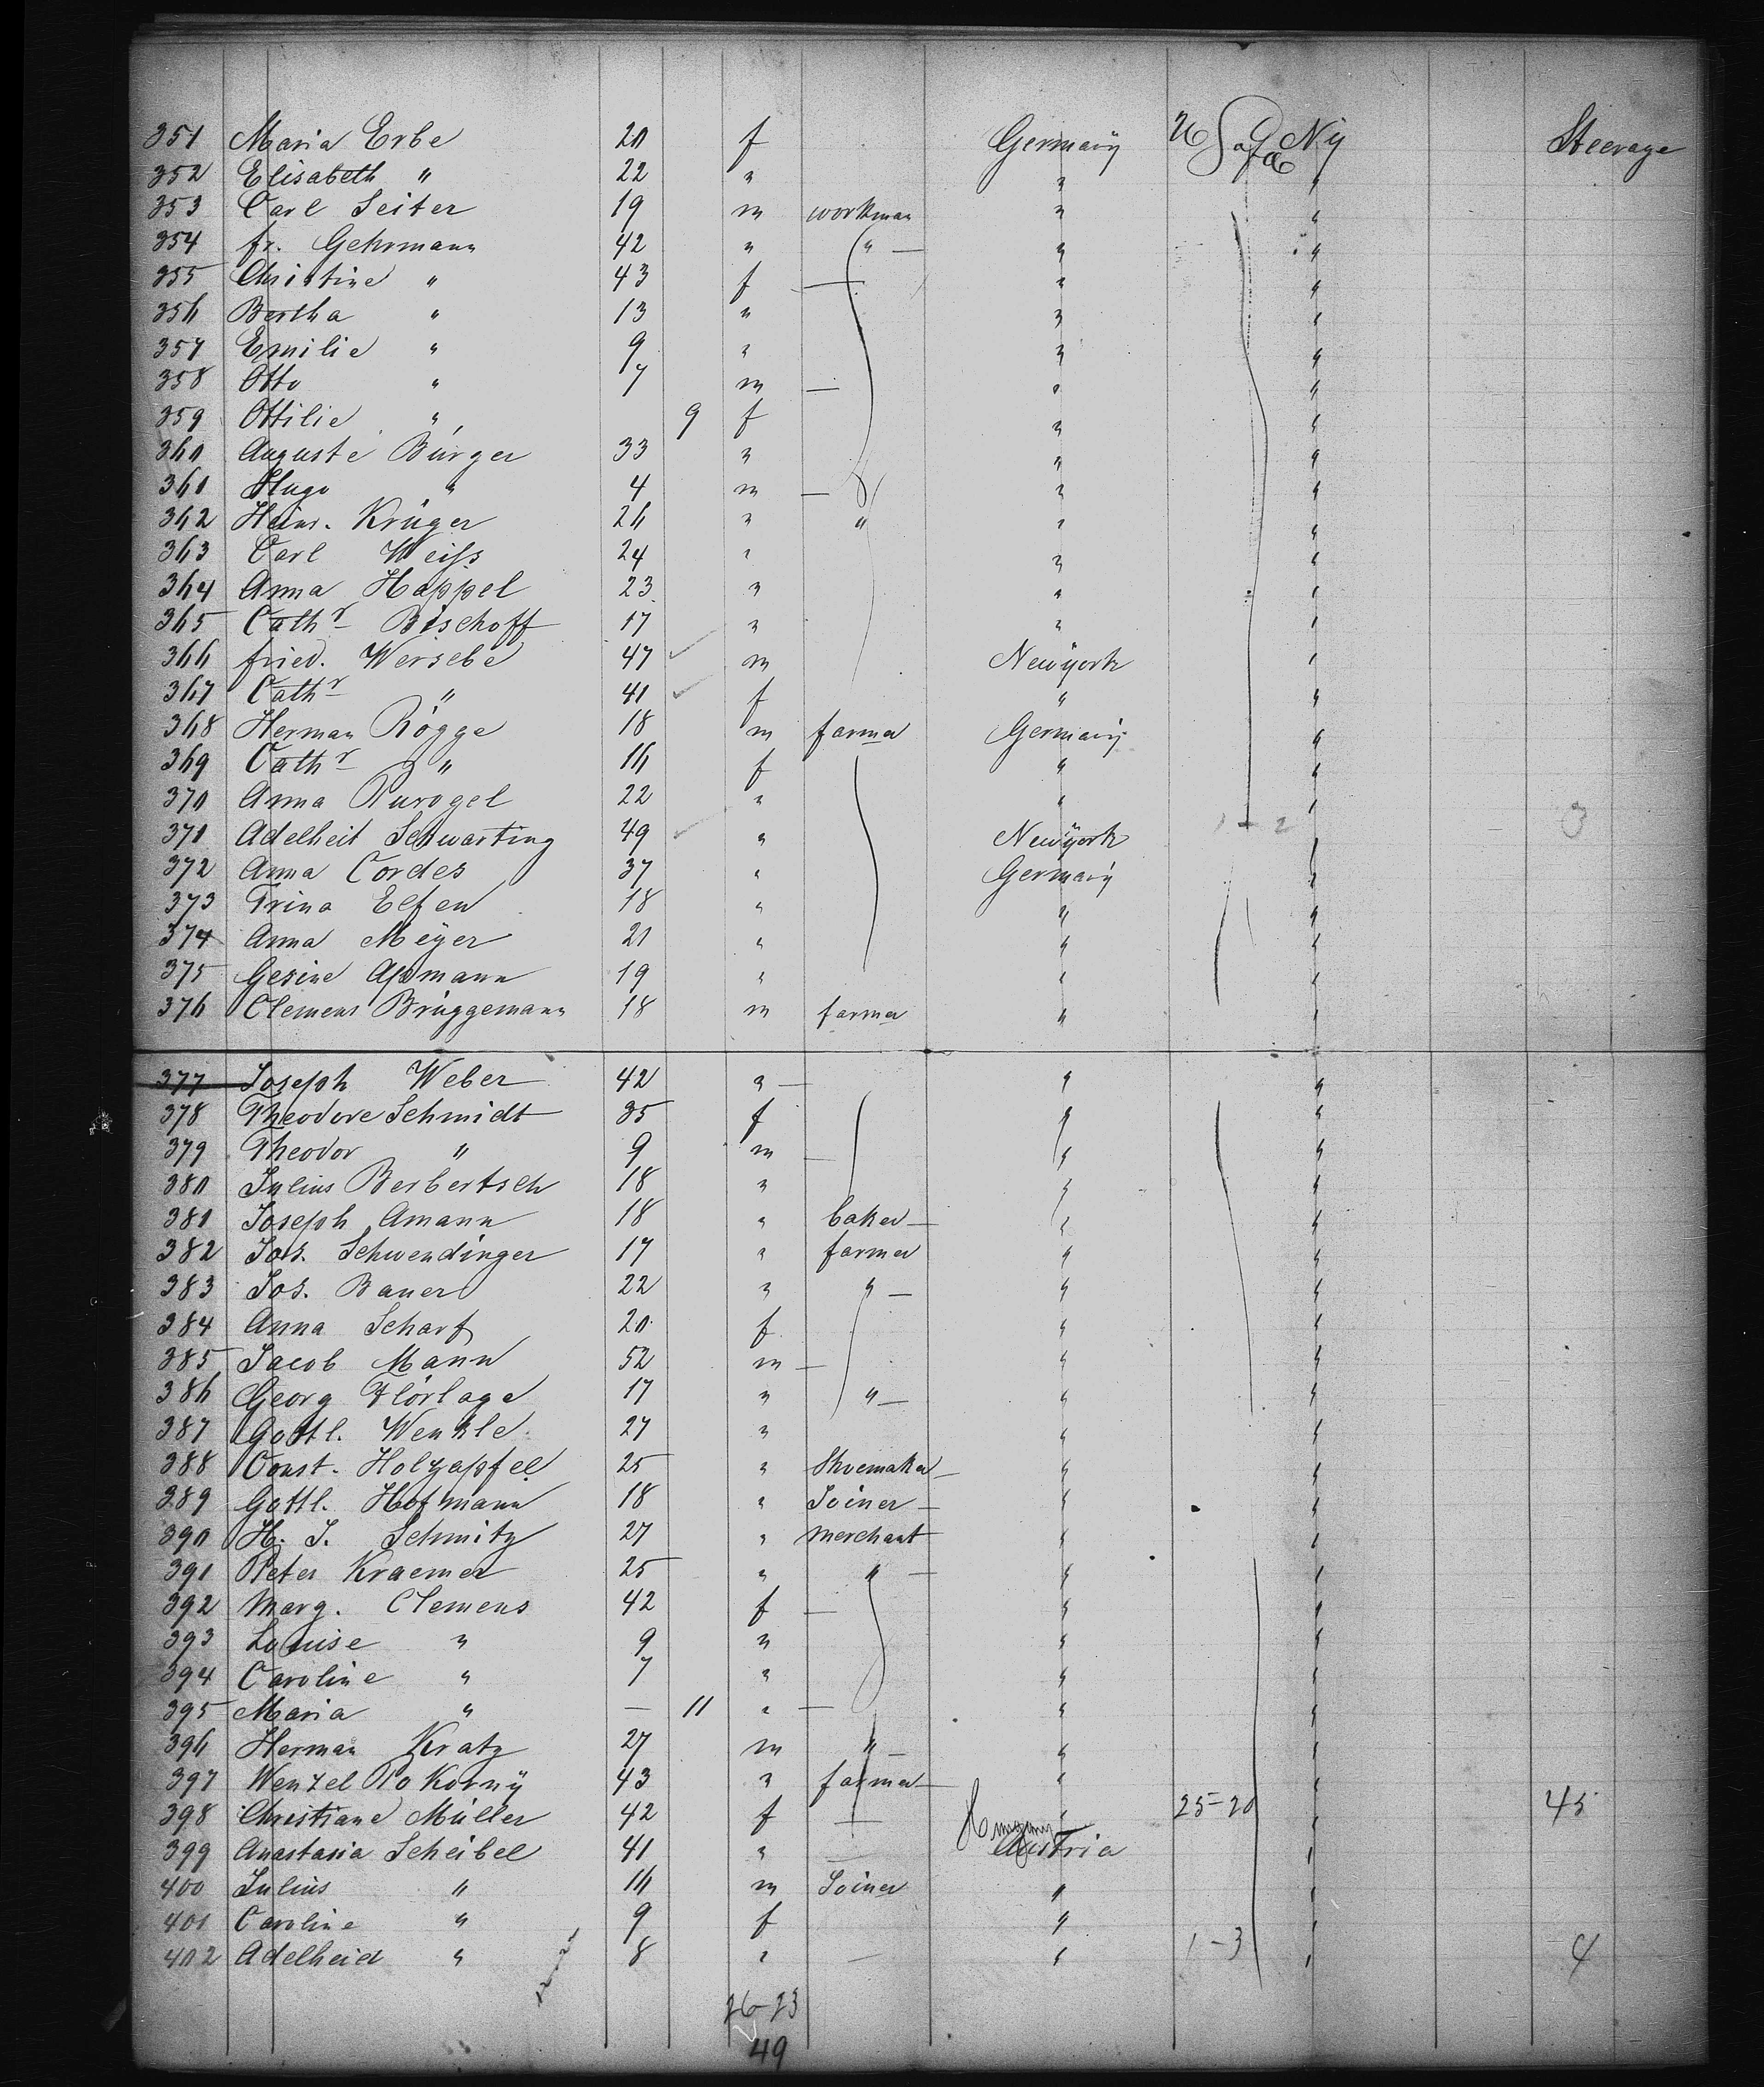 351 Maria Erbe 20 f Germany U S of a NY Steerage
352 Elisabeth " 22 " " "
353 Carl Seiter 19 m workman " "
354 fr. Gehrmann 42 " " — " "
355 Christine " 43 f — " "
356 Bertha " 13 " " "
357 Emilie " 9 " " "
358 Otto " 7 m — " "
359 Ottilie " 9 f " "
360 Auguste Bürger 33 " " "
361 Hugo " 4 m — " "
362 Heinr. Krüger 26 " " " "
363 Carl Weiss 24 " " "
364 Anna Happel 23 " " "
365 Cathr Bischoff 17 " " "
366 fried. Wersebe 47 m Newyork "
367 Cathr " 41 f " "
368 Herman Rögge 18 m farmer Germany "
369 Cathr " 16 f " "
370 Anna Purogel 22 " " "
371 Adelheit Schwarting 49 " Newyork 1 - 2 " 3
372 Anna Cordes 37 " Germany "
373 Trina Elfen 18 " " "
374 Anna Meyer 21 " " "
375 Gesine Assmann 19 " " "
376 Clemens Brüggemann 18 m farmer " "
377 Joseph Weber 42 " — " "
378 Theodore Schmidt 35 f " "
379 Theodor " 9 m — " "
380 Julius Berbertsch 18 " " "
381 Joseph Amann 18 " baker — " "
382 Jos. Schwendinger 17 " farmer " "
383 Jos. Bauer 22 " " — " "
384 Anna Scharf 20 f " "
385 Jacob Mann 52 m — " "
386 Georg Flörlage 17 " " — " "
387 Gottl. Wenkle 27 " " "
388 Const. Holzapfel 25 " Shoemaker — " "
389 Gottl. Hofmann 18 " Joiner — " "
390 H. J. Schmitz 27 " merchant " "
391 Peter Kraemer 25 " " — " "
392 Marg. Clemens 42 f — " "
393 Louise " 9 " " "
394 Caroline " 7 " " "
395 Maria " — 11 " — " "
396 Herman Kratz 27 m " — " "
397 Wenzel Pokorny 43 " farmer — " "
398 Christiane Müller 42 f — " 25-20 " 45
399 Anastasia Scheibel 41 " — Austria "
400 Julius " 16 m Joiner " "
401 Caroline " 9 f " "
402 Adelheid " 8 " — " 1-3 " 4
26-23
49